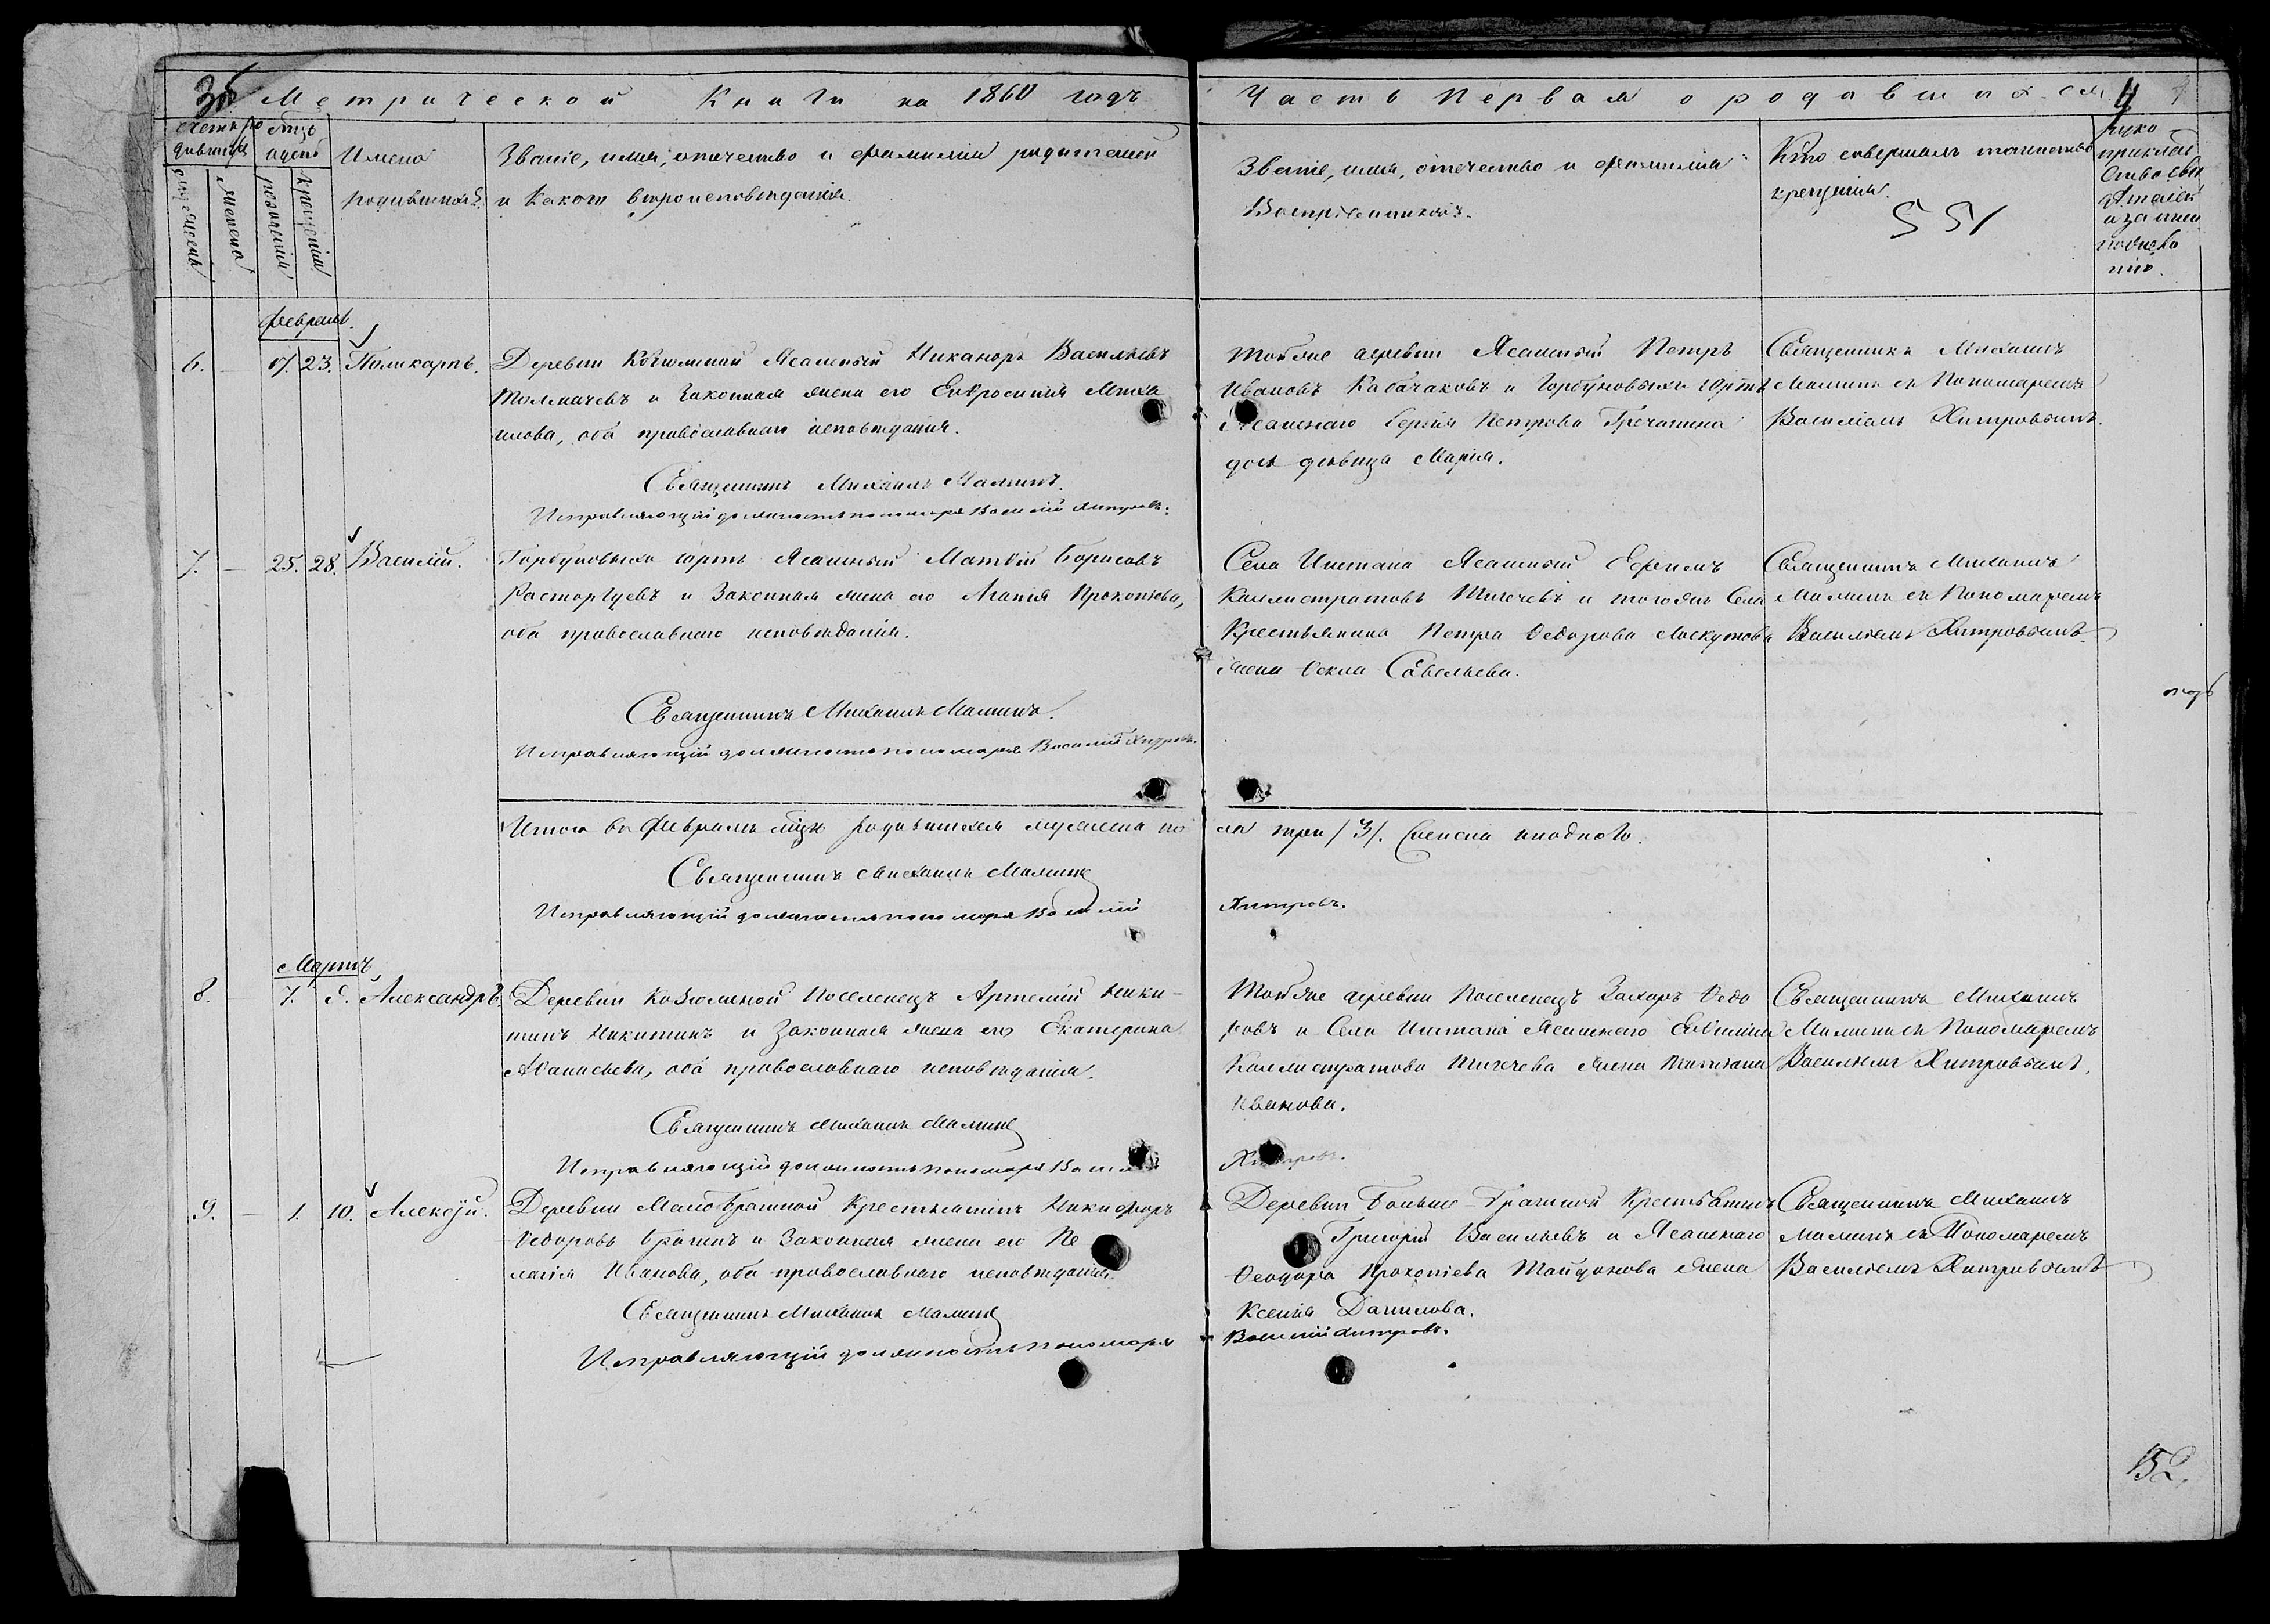 Метрической Книги на 1860 годъ
Часть первая о родившихся
4
Счетъ ро
дившихся
Мцъ
и день
мужеска
женска
рожденія
крещенія
Имена
родившихся.
Званіе, имя, отчество и фамилія родителей
и какого вѣроисповѣданія.
Званіе, имя, отчество и фамилія
Воспріемниковъ.
Кто совершалъ таинство
крещенія.
551
Руко
приклад
ство сви
дѣтелей
о записи
по жела
нію.
Февраль.
6. — 17. 23. Поликарпъ.
Деревни Козюлиной Ясашный Никаноръ Васильевъ
Толмачевъ и Законная жена его Евфросинія Миха
илова, оба православнаго исповѣданія.
Священникъ Михаилъ Малинъ.
Исправляющій должность пономаря Василій Хитровъ.
Той же деревни Ясашный Петръ
Ивановъ Кабачаковъ и Горбуновыхъ Юртъ
Ясашнаго Сергія Петрова Гречанина
дочь дѣвица Марія.
Священникъ Михаилъ
Малинъ съ Пономаремъ
Василіемъ Хитровымъ.
7. — 25. 28. Василій.
Горбуновыхъ юртъ Ясашный Матвій Борисовъ
Расторгуевъ и Законная жена его Агапія Прокопіева,
оба православнаго исповѣданія.
Священникъ Михаилъ Малинъ.
Исправляющій должность пономаря Василій Хитровъ.
Села Иштана Ясашный Ефремъ
Каллистратовъ Тигечевъ и того же Села
Крестьянина Петра Ѳедорова Москутова
жена Ѳекла Савельева.
Священникъ Михаилъ
Малинъ съ Пономаремъ
Василіемъ Хитровымъ.
Итого въ Февралѣ мцѣ родившихся мужеска по
ла три /3/. Женска ни одного.
Священникъ Михаилъ Малинъ
Исправляющій должность пономаря Василій
Хитровъ.
Мартъ
8. 7. Александръ.
Деревни Козюлиной Поселенецъ Артемій Ники-
тинъ Никитинъ и Законная жена его Екатерина
Аѳанасьева, оба православнаго исповѣданія.
Священникъ Михаилъ Малинъ
Исправляющій должность пономаря Василій
Хитровъ.
Той же деревни Поселенецъ Захаръ Ѳедо
ровъ и Села Иштана Ясашнаго Евѳимія
Каллистратова Тигечева жена Татіана
Иванова.
Священникъ Михаилъ
Малинъ съ Пономаремъ
Василіемъ Хитровымъ.
9. — 1. 10. Алексѣй.
Деревни Малобрагиной Крестьянинъ Никифоръ
Ѳедоровъ Брагинъ и Законная жена его Пе
лагія Иванова, оба православнаго исповѣданія.
Священникъ Михаилъ Малинъ
Исправляющій должность пономаря
Деревни Больше-Брагиной Крестьянинъ
Григорій Васильевъ и Ясашнаго
Ѳеодора Прокопіева Тайдонова жена
Ксенія Данилова.
Василій Хитровъ.
Священникъ Михаилъ
Малинъ съ Пономаремъ
Василіемъ Хитровымъ
152.